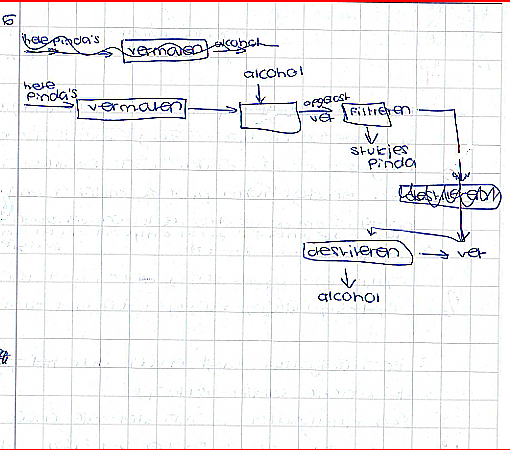 5
hele pinda's
vermalen
alcohol
alcohol
hele
pinda's
vermalen
opgelost
vet
Filtreren
stukjes
pinda
destilleren
vet
alcohol